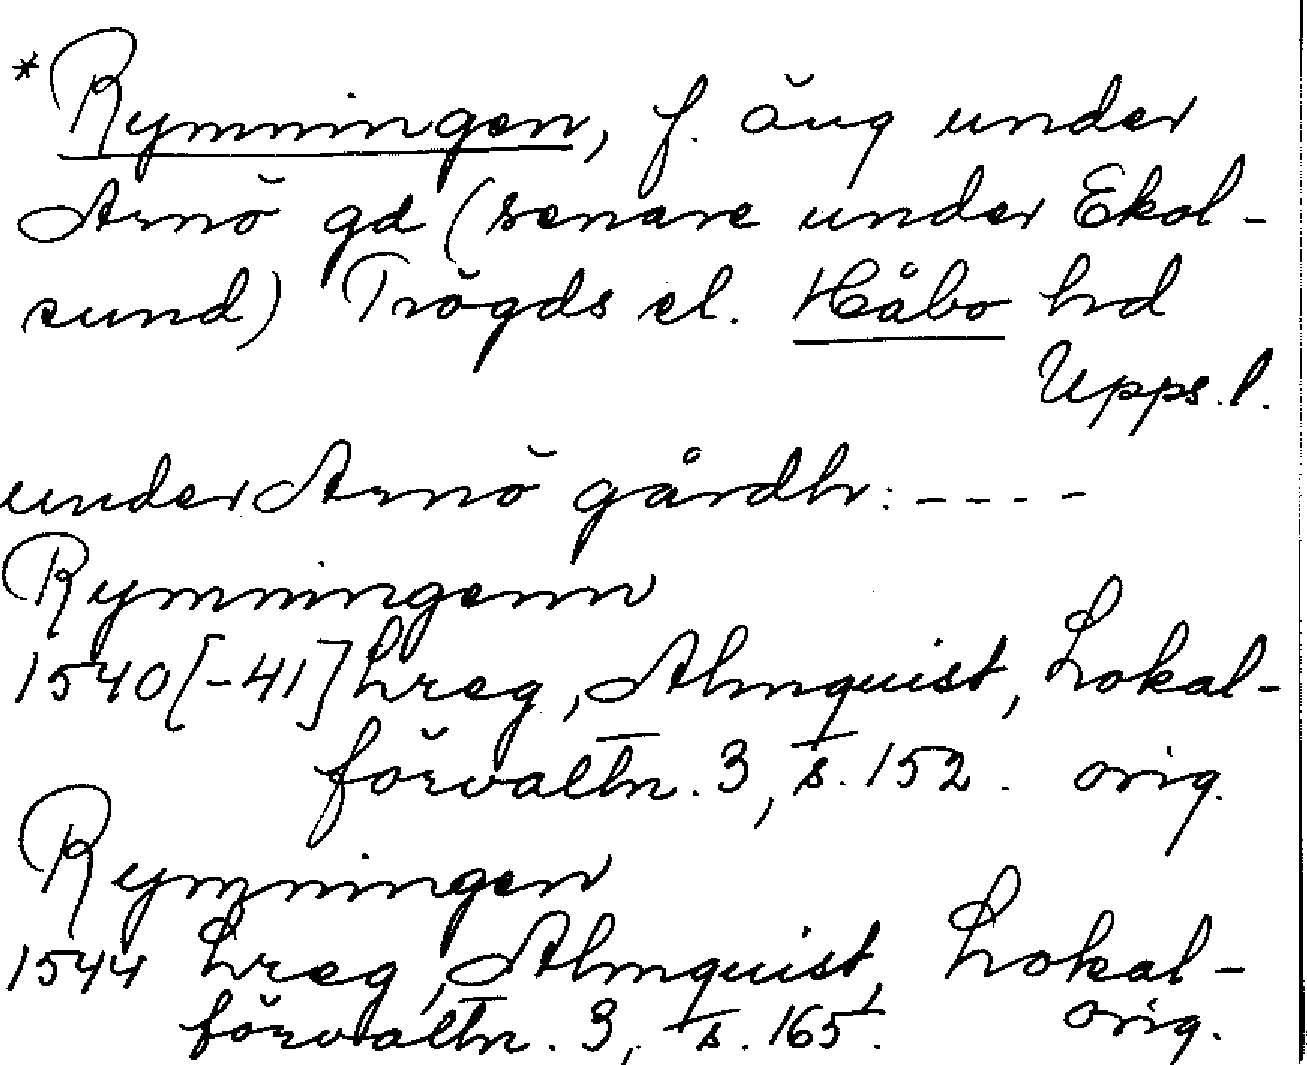 *Rymningen, f. äng under
Arnö gd (senare under Ekol-
sund) Trögds el. Håbo hd
Upps. l.
under Arnö gårdh: - - - -
Rymningenn
1540[-41] hreg, Almquist, Lokal-
förvaltn. 3, s. 152. orig.
Rymningen
1544 hreg, Almquist, Lokal-
förvaltn. 3, s. 165. orig.